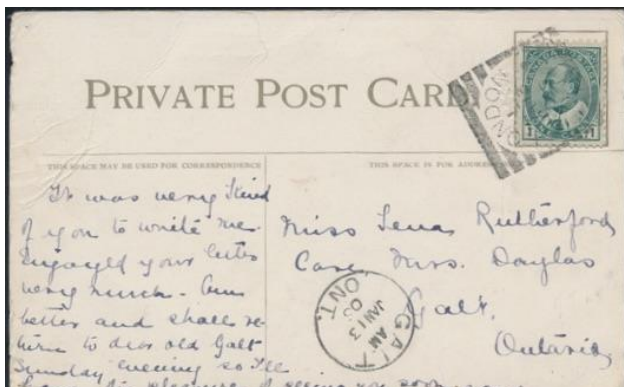 PRIVATE POST CARD
CANADA POSTAGE
1 1
THIS SPACE MAY BE USED FOR CORRESPONDENCE
THIS SPACE IS FOR ADDRESS
It was very kind
of you to write me.
Enjoyed your letter
very much. Am
better and shall re-
turn to dear old Galt
Sunday evening so I'll
pleasure of seeing you soon
Miss Lena Rutherford
Care Mrs. Douglas
Galt,
Ontario,
GALT
AM
JAN 13
ONT.